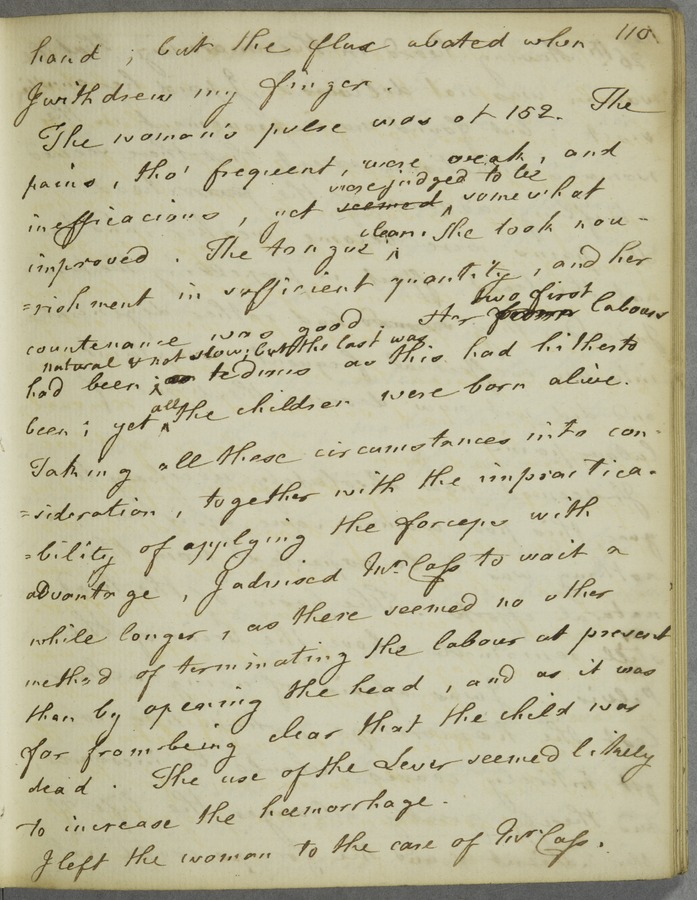 110.
hand ; but the flux abated when
I withdrew my finger.
The woman's pulse was at 152. The
pains, tho' frequent, were weak, and
were judged to be
inefficacious, yet seemed ^ somewhat
clean.
improved. The tongue ^ She took nou-
=rishment in sufficient quantity, and her
two first
countenance was good. Her labours
natural & not slow; but the last was
had been ^ as tedious as this had hitherto
all
been; yet ^ the children were born alive.
Taking all these circumstances into con-
=sideration, together with the impractica-
=bility of applying the forceps with
advantage, I advised Mr. Cass to wait a
while longer, as there seemed no other
method of terminating the labour at present
than by opening the head, and as it was
far from being clear that the child was
dead. The use of the Lever seemed likely
to increase the hæmorrhage.
I left the woman to the care of Mr. Cass.